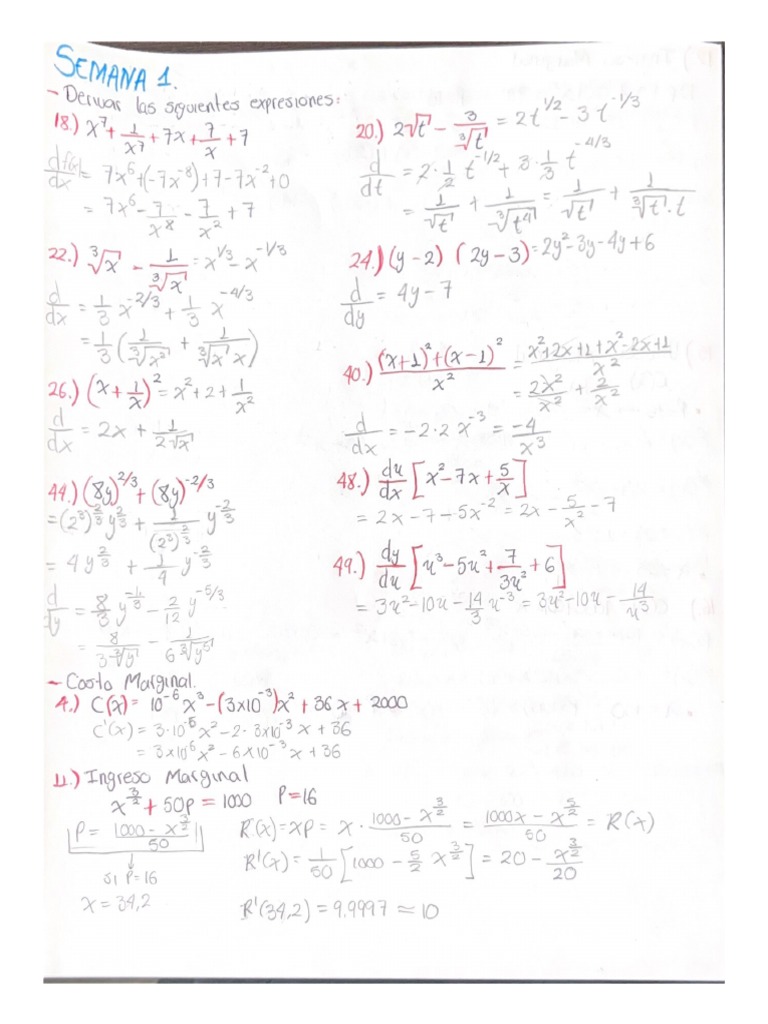 SEMANA 1.
- Derivar las siguientes expresiones:
18.) x⁷ + 1/x⁷ + 7x + 7/x + 7
df(x)/dx = 7x⁶ + (-7x⁻⁸) + 7 - 7x⁻² + 0
= 7x⁶ - 7/x⁸ - 7/x² + 7
20.) 2√t - 3/∛t = 2t^1/2 - 3t^-1/3
d/dt = 2·1/2 t^-1/2 + 3·1/3 t^-4/3
= 1/√t + 1/∛t⁴ = 1/√t + 1/∛t·t
22.) ∛x - 1/∛x = x^1/3 - x^-1/3
d/dx = 1/3 x^-2/3 + 1/3 x^-4/3
= 1/3 (1/∛x² + 1/∛x x)
24.) (y-2) (2y-3) = 2y² - 3y - 4y + 6
d/dy = 4y - 7
26.) (x + 1/x)² = x² + 2 + 1/x²
d/dx = 2x + 1/2√x
40.) (x+1)² + (x-1)²/x² = x² + 2x + 1 + x² - 2x + 1/x²
= 2x²/x² + 2/x²
d/dx = -2·2x⁻³ = -4/x³
44.) (8y)^2/3 + (8y)^-2/3
= (2³)^2/3 y^2/3 + 1/(2³)^2/3 y^-2/3
= 4y^2/3 + 1/4 y^-2/3
d/dy = 8/3 y^-1/3 - 2/12 y^-5/3
= 8/3∛y - 1/6∛y⁵
48.) du/dx [x² - 7x + 5/x]
= 2x - 7 - 5x⁻² = 2x - 5/x² - 7
49.) dy/du [u³ - 5u² + 7/3u² + 6]
= 3u² - 10u - 14/3 u⁻³ = 3u² - 10u - 14/u³
- Costo Marginal.
4.) C(x) = 10⁻⁶x³ - (3x10⁻³)x² + 36x + 2000
C'(x) = 3·10⁻⁶x² - 2·3x10⁻³x + 36
= 3x10⁶x² - 6x10⁻³x + 36
11.) Ingreso Marginal
x^3/2 + 50p = 1000 P=16
P = 1000 - x^3/2/50
si P=16
x = 34,2
R(x) = xp = x · 1000 - x^3/2/50 = 1000x - x^5/2/50 = R(x)
R'(x) = 1/50 [1000 - 5/2 x^3/2] = 20 - x^3/2/20
R'(34,2) = 9.9997 ≈ 10